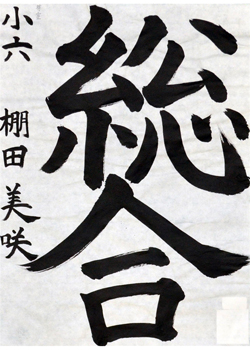 総合
小六 棚田美咲